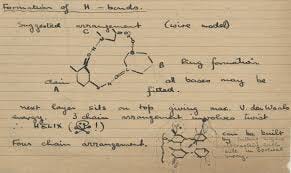 Formation of H - bonds.
Suggested arrangement (wire model)
C
B
Ring formation
chain A
all bases may be
fitted.
next layer sits on top giving max. V. der Waals
energy. 3 chain arrangement involves twist
∴ HELIX ( !)
can be built
Four chain arrangement.